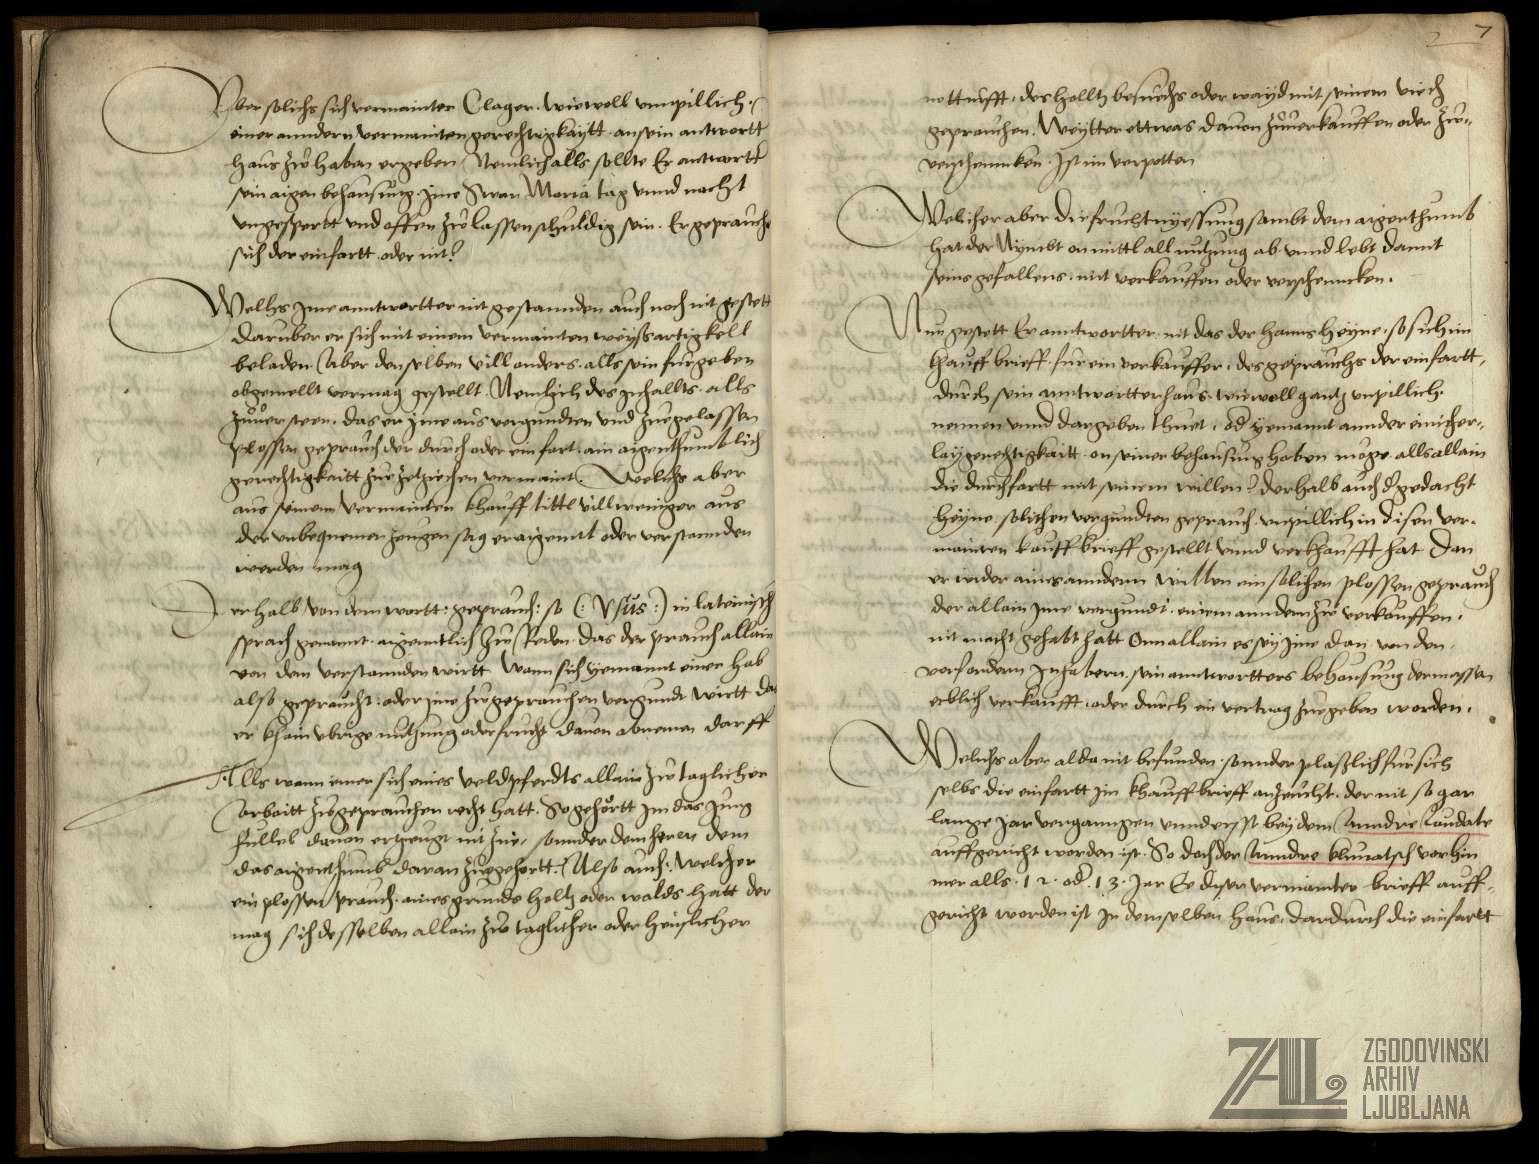 Uber solichs sich vermainter Clager. wiewoll unpillich.
einer anndern vermainten gerechtigkaytt. an sein antwortt
haus zw haben ergeben Nemlich alls sollte Er antwortter
sein aigen behausung. jme Maria tag unnd nacht
ungespertt und offen zw lassen schuldig sein. Er geprauche
sich der einfartt. oder nit?
Welhs jme anntwortter nit gestannden auch noch nit gestett
daruber er sich mit einem vermainten weysartigkell
beladen. Aber denselben vill anders. alls sein furgeben
obgemellt vermag gestellt. Nemlich des Inhallts. alls
zuversteen. das er jme aus vergundten und zuegelassen
plossen geprauch der durch oder einfart. ain aigenthumblich
gerechtigkaitt zue vermaint. Welichs aber
aus seinem vermainten khauff tittl vill weniger aus
der unbequemer zeugen sag eraigennt oder verstannden
werden mag
Derhalb von dem wortt: geprauch: so (: Vsus :) in lateinisch
sprach genannt. aigenntlich zw Reden. das der prauch allain
von dem verstannden wirtt Wann sich yemannt einer hab
also gepraucht: oder jme zugeprauchen vergundt wirtt das
er khain ubrige nutzung oder frucht davon abnemen darff
Alls wann einer sich eines Veldpferdts allain zw taglicher
arbaitt zw geprauchen recht hatt. So gehörtt jm das jung
fulles davon ertzeugt nit zue, sonnder dem herrn dem
das aigenthumb daran zuegehortt. Also auch: Welcher
ein plossen prauch. aines grundts holtz oder walds hatt der
mag sich desselben allain zw taglicher oder heuslicher
7
notturfft. des holltz besuechs oder wayd mit seinem viech
geprauchen. Weytter ettwas davon zuverkauffen oder zw-
verschenncken. Ist im verpotten
Welicher aber die fruchtnyessung sambt dem aigenthumb
hat der Nymbt on mittl all nutzung ab. unnd lebt damit
seins gefallens. mit verkauffen oder verschenncken.
Nun gestett Er anntwortter. nit das der Hanns Heyne. so sich im
khauff brieff fur ein verkauffer. des geprauchs der einfartt,
durch sein anntwortter haus. wiewoll gantz unpillich.
nennen unnd dargeben thuet. od yemannt annder einicher-
lay gerechtigkaitt. on seiner behausung haben möge. alls allain
die durchfartt mit seinem willen? derhalb auch der gedacht
Heyne solichen vergundten geprauch. unpillich in disen ver-
mainten kauff brieff gestellt unnd verkhaufft hat Dan
er wider aines anndern Willen ein solichen plossen geprauch
der allain jme vergundt. einem anndern zw verkauffen.
nit macht gehabt hatt Onn allain es sey jme dan von den.
vorfordern Inhabern. sein anntwortters behausung dermassen
erblich verkaufft. oder durch ein vertrag zuegeben worden.
Welichs aber alda nit befunden. sonnder plaslich fur sich
selbs die einfartt jm khauff brieff antzeucht. der nit so gar
lannge jar verganngen unnd erst bey dem Anndre Laudate
auffgericht worden ist. So doch der Anndre Klunatsch vorhin
mer alls. 12. od. 13. Jar Ee diser vermainter brieff auff-
gericht worden ist jn demselben haus. dardurch die einfartt
ZAL
ZGODOVINSKI
ARHIV
LJUBLJANA